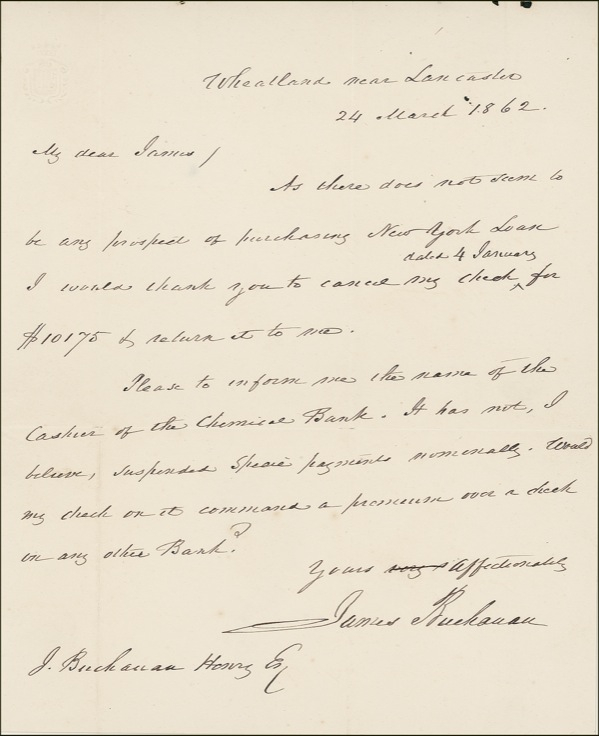 Wheatland near Lancaster
24 March 1862.
My dear James/
As there does not seem to
be any prospect of purchasing New York Loan
dated 4 January
I would thank you to cancel my check ^ for
$10175 & return it to me.
Please to inform me the name of the
Cashier of the Chemical Bank. It has not, I
believe, suspended specie payments nominally. Would
my check on it command a premium over a check
on any other Bank?
Yours very affectionately
James Buchanan
J. Buchanan Henry Esq